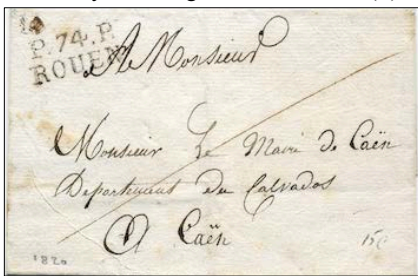 P.74.P.
ROUEN
A Monsieur
Monsieur Le Maire de Caën
Departement du Calvados
A Caën
1820
15c